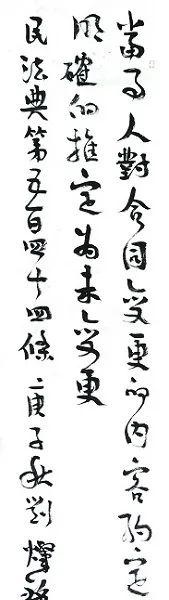 當事人對合同變更的內容約定
不明確的推定為未變更
民法典第五百四十四條 庚子秋劉燿